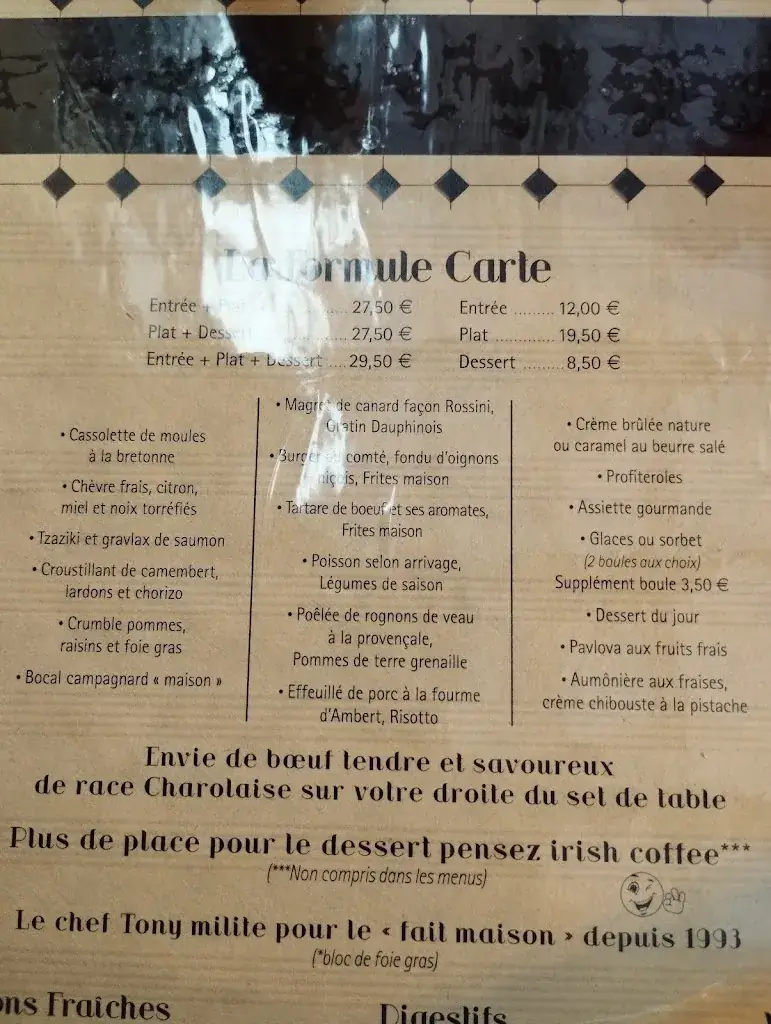 La Formule Carte
Entrée + Plat ..... 27,50 €
Plat + Dessert ..... 27,50 €
Entrée + Plat + Dessert .... 29,50 €
Entrée ......... 12,00 €
Plat ............. 19,50 €
Dessert ......... 8,50 €
• Cassolette de moules
à la bretonne
• Chèvre frais, citron,
miel et noix torréfiés
• Tzaziki et gravlax de saumon
• Croustillant de camembert,
lardons et chorizo
• Crumble pommes,
raisins et foie gras
• Bocal campagnard « maison »
• Magret de canard façon Rossini,
Gratin Dauphinois
• Burger au comté, fondu d'oignons
niçois, Frites maison
• Tartare de boeuf et ses aromates,
Frites maison
• Poisson selon arrivage,
Légumes de saison
• Poêlée de rognons de veau
à la provençale,
Pommes de terre grenaille
• Effeuillé de porc à la fourme
d'Ambert, Risotto
• Crème brûlée nature
ou caramel au beurre salé
• Profiteroles
• Assiette gourmande
• Glaces ou sorbet
(2 boules aux choix)
Supplément boule 3,50 €
• Dessert du jour
• Pavlova aux fruits frais
• Aumônière aux fraises,
crème chibouste à la pistache
Envie de bœuf tendre et savoureux
de race Charolaise sur votre droite du set de table
Plus de place pour le dessert pensez irish coffee***
(***Non compris dans les menus)
Le chef Tony milite pour le « fait maison » depuis 1993
(*bloc de foie gras)
ons Fraîches
Digestifs